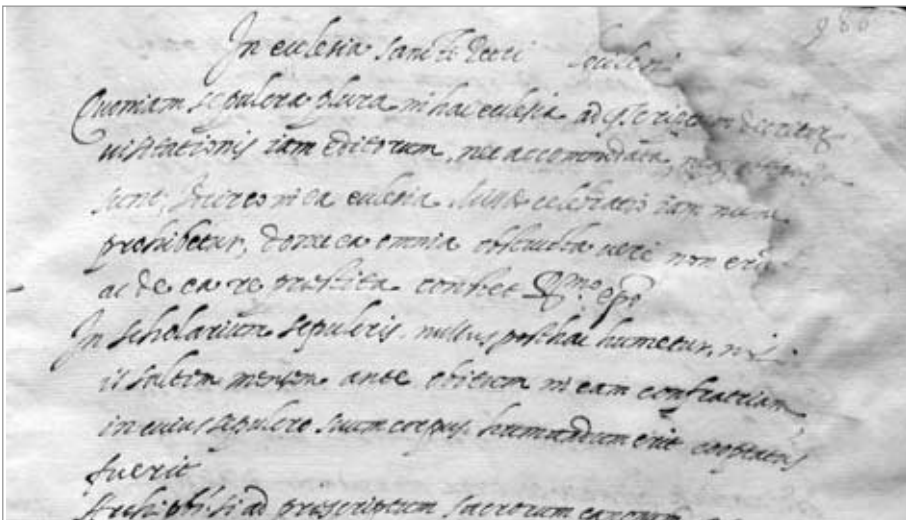 980
In ecclesia sancti
Quoniam sepulcra plura in hac ecclesia ad
uisitationis iam editorum, nec accommodata
sunt; Idcirco in ea ecclesia celebratio iam nunc
prohibetur, donec ea omnia uere non
ac de ea re constet R.mo epo
In scholarium sepulcris nullus posthac humetur, nisi
is saltem mensem ante obitum in eam confratriam,
in cuius sepulcro suum corpus humandum erit cooptatus
fuerit
si ad prescriptum sacrorum canonum